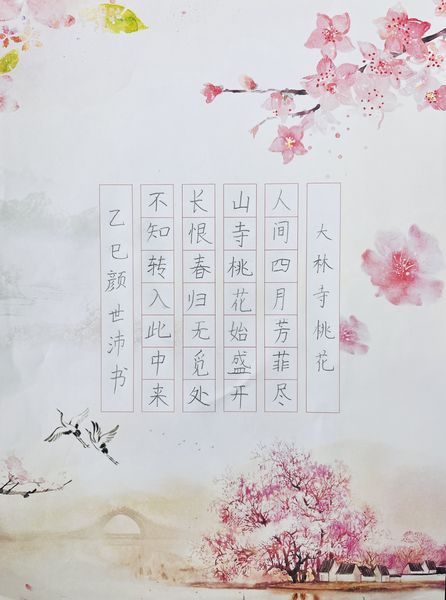 大林寺桃花
人间四月芳菲尽
山寺桃花始盛开
长恨春归无觅处
不知转入此中来
乙巳颜世沛书